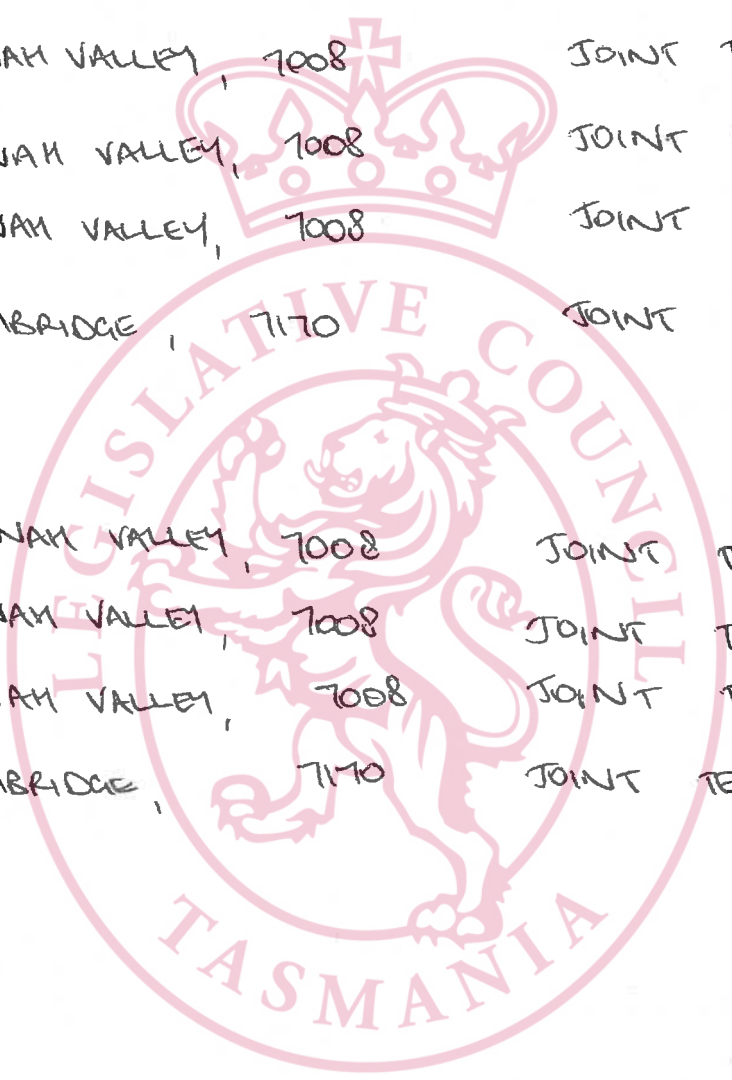 NAH VALLEY, 7008 JOINT T
NAH VALLEY, 7008 JOINT
NAH VALLEY, 7008 JOINT
MBRIDGE, 7170 JOINT
NAH VALLEY, 7008 JOINT T
NAH VALLEY, 7008 JOINT T
AH VALLEY, 7008 JOINT T
MBRIDGE, 7170 JOINT TE
LEGISLATIVE COUNCIL
TASMANIA